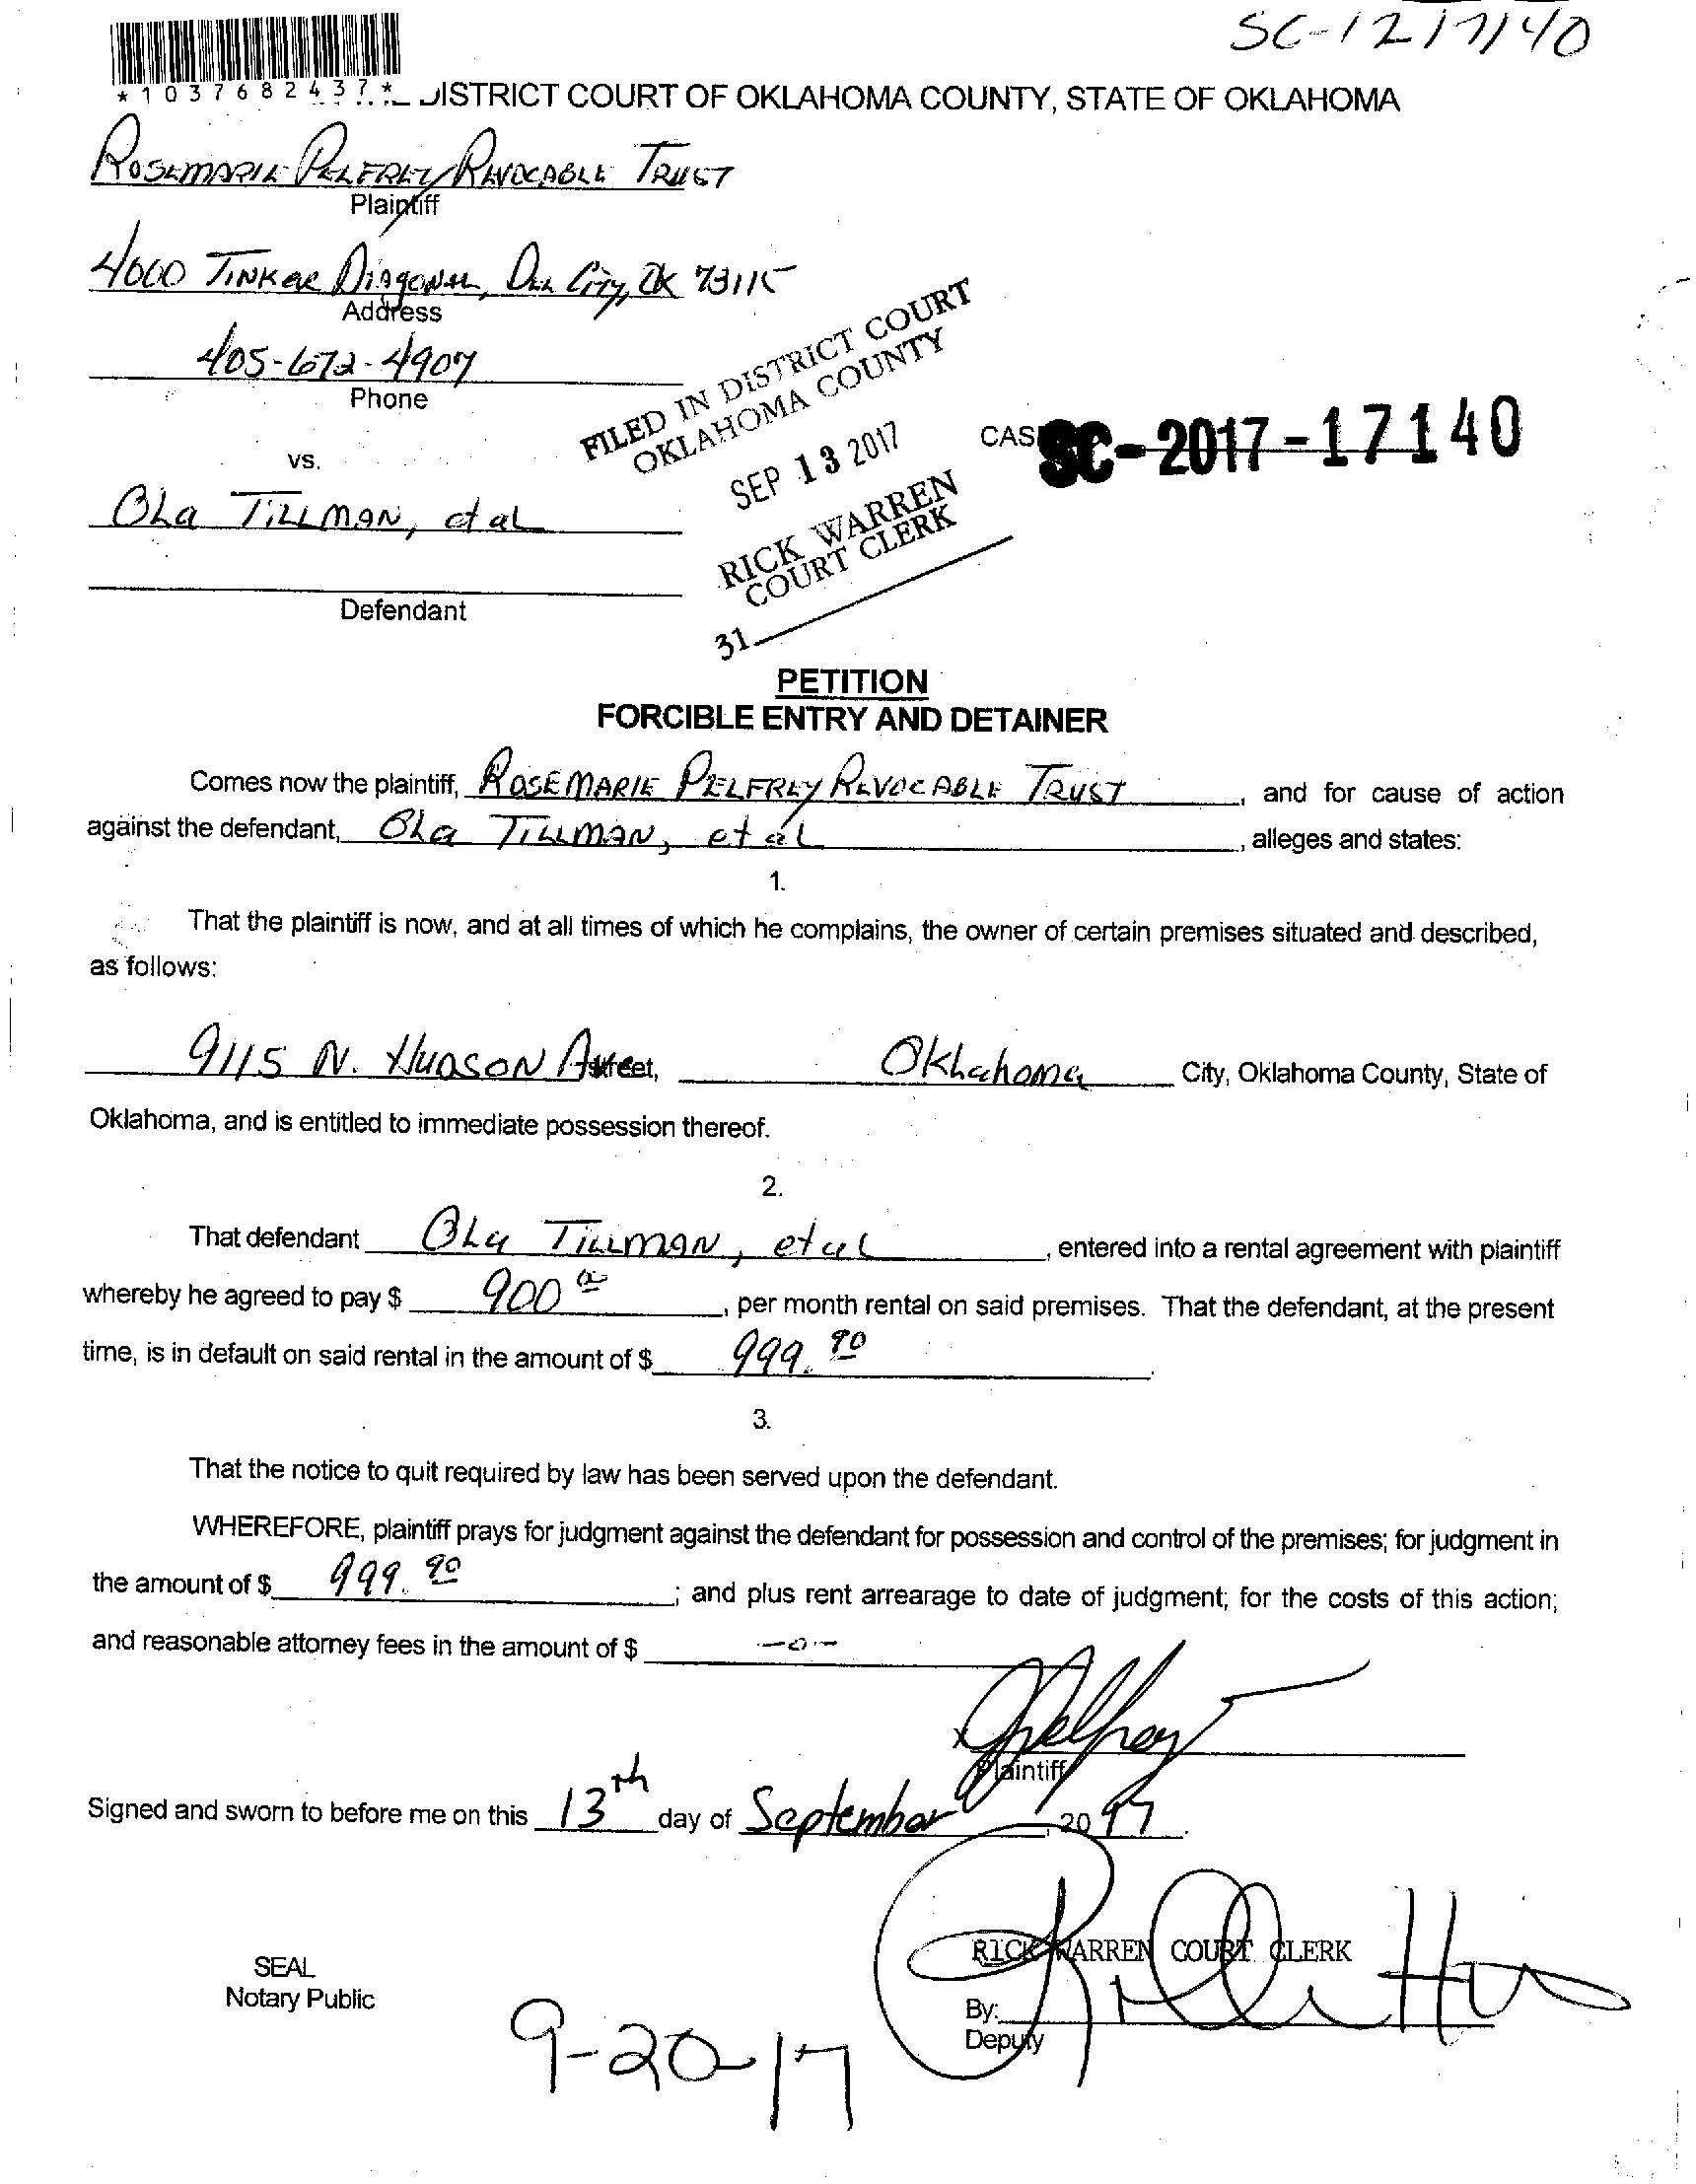 SC-1217140
*1037682437*
DISTRICT COURT OF OKLAHOMA COUNTY, STATE OF OKLAHOMA
ROSEMARIE PELFREY REVOCABLE TRUST
Plaintiff
4000 TINKER DIAGONAL, DEL CITY, OK 73115
Address
405-672-4907
Phone
FILED IN DISTRICT COURT
OKLAHOMA COUNTY
SEP 13 2017
RICK WARREN
COURT CLERK
31
CAS SC-2017-17140
vs.
Ola TILLMAN, et al
Defendant
PETITION
FORCIBLE ENTRY AND DETAINER
Comes now the plaintiff, ROSEMARIE PELFREY REVOCABLE TRUST, and for cause of action
against the defendant, Ola TILLMAN, et al, alleges and states:
1.
That the plaintiff is now, and at all times of which he complains, the owner of certain premises situated and described,
as follows:
9115 N. HUDSON Street, Oklahoma City, Oklahoma County, State of
Oklahoma, and is entitled to immediate possession thereof.
2.
That defendant Ola TILLMAN, et al, entered into a rental agreement with plaintiff
whereby he agreed to pay $ 900 00, per month rental on said premises. That the defendant, at the present
time, is in default on said rental in the amount of $ 999.90.
3.
That the notice to quit required by law has been served upon the defendant.
WHEREFORE, plaintiff prays for judgment against the defendant for possession and control of the premises; for judgment in
the amount of $ 999.90; and plus rent arrearage to date of judgment; for the costs of this action;
and reasonable attorney fees in the amount of $ -0-
x
Plaintiff
Signed and sworn to before me on this 13th day of September, 20 17.
RICK WARREN COURT CLERK
SEAL
Notary Public
By:
Deputy
9-20-17